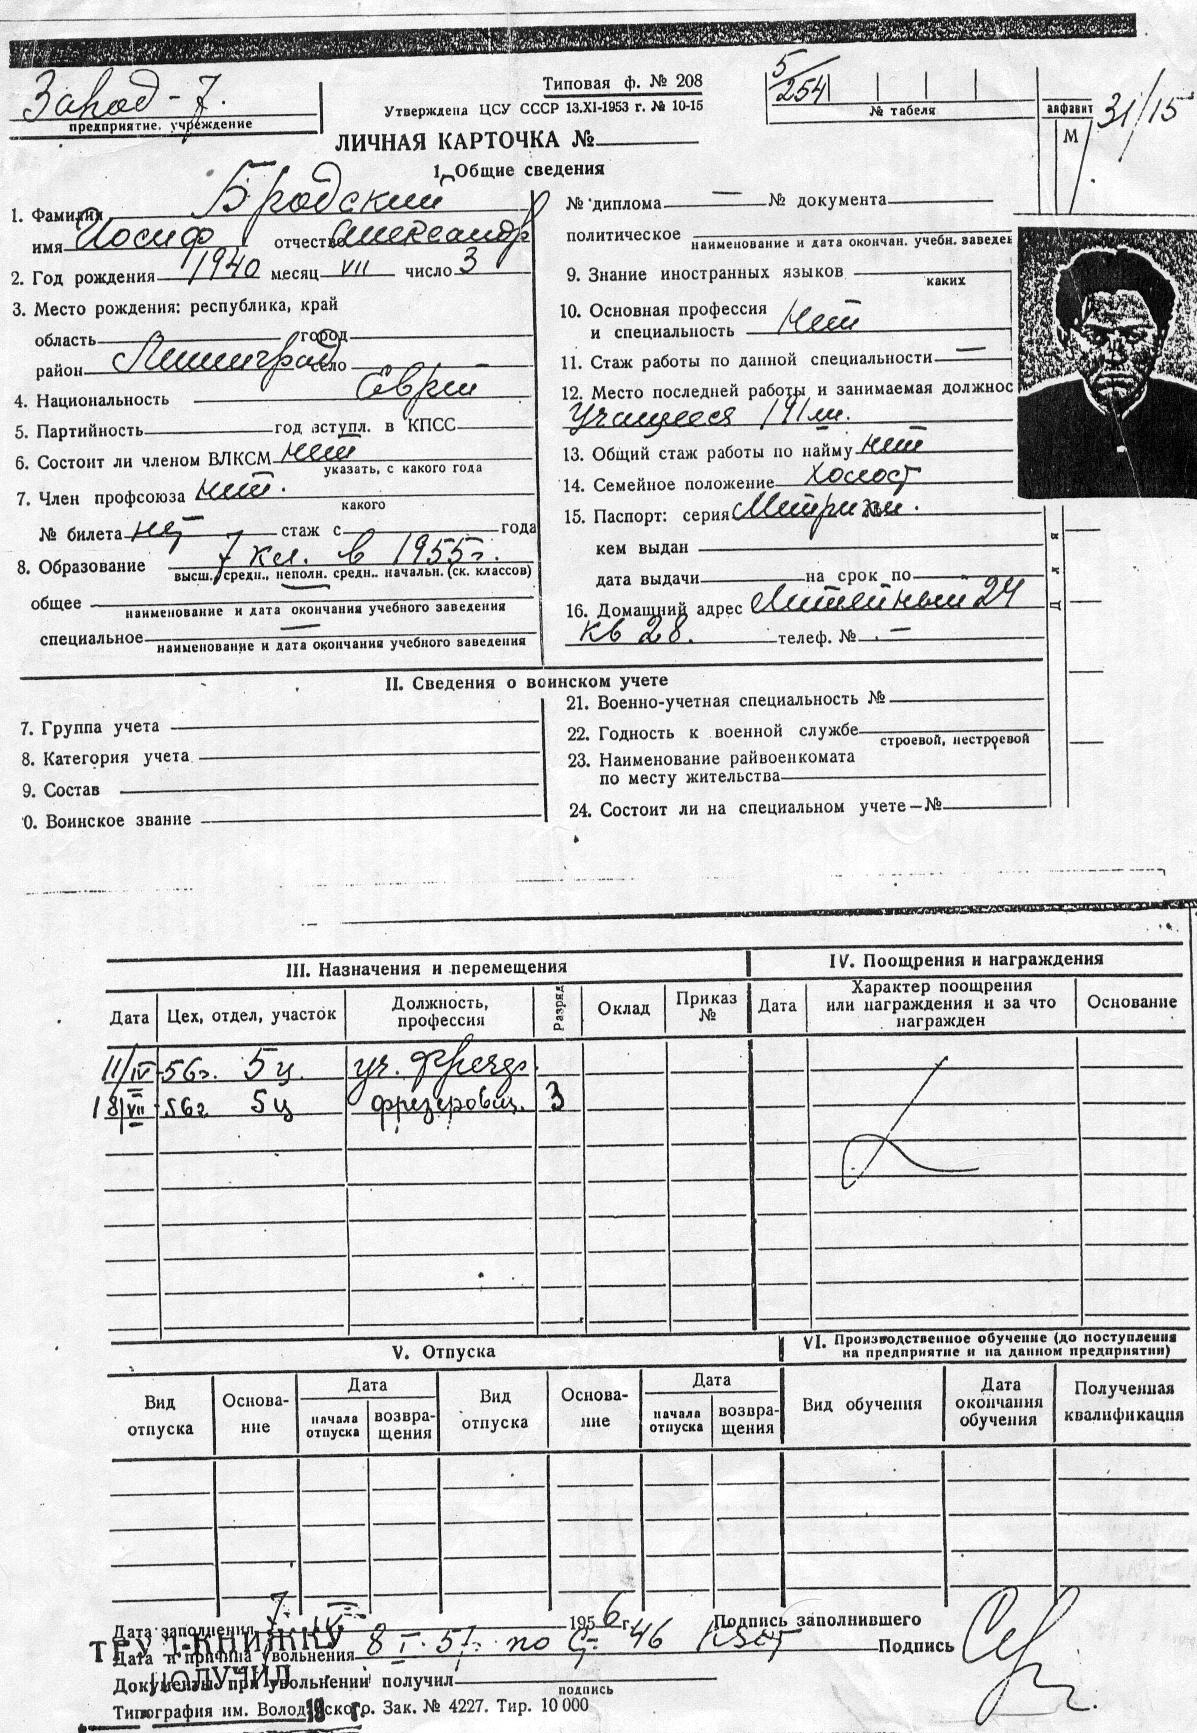 Завод - 7.
предприятие, учреждение
Типовая ф. № 208
Утверждена ЦСУ СССР 13.XI-1953 г. № 10-15
5/254
№ табеля
алфавит
М
31/15
ЛИЧНАЯ КАРТОЧКА №
I. Общие сведения
1. Фамилия Бродский
имя Иосиф отчество Александр
2. Год рождения 1940 месяц VII число 3
3. Место рождения: республика, край
область город
район Ленинград село
4. Национальность Еврей
5. Партийность год вступл. в КПСС
6. Состоит ли членом ВЛКСМ нет
указать, с какого года
7. Член профсоюза нет.
какого
№ билета нет стаж с года
8. Образование 7 кл. в 1955 г.
высш., средн., неполн. средн., начальн. (ск. классов)
общее
наименование и дата окончания учебного заведения
специальное —
наименование и дата окончания учебного заведения
№ диплома — № документа
политическое
наименование и дата окончан. учебн. заведе
9. Знание иностранных языков
каких
10. Основная профессия
и специальность нет
11. Стаж работы по данной специальности —
12. Место последней работы и занимаемая должнос
Учащееся 191 шк.
13. Общий стаж работы по найму нет
14. Семейное положение холост
15. Паспорт: серия Метрики.
кем выдан
дата выдачи на срок по
16. Домашний адрес Литейный 24
кв 28. телеф. № —
Д л я
II. Сведения о воинском учете
7. Группа учета
8. Категория учета
9. Состав
0. Воинское звание
21. Военно-учетная специальность №
22. Годность к военной службе
строевой, нестроевой
23. Наименование райвоенкомата
по месту жительства
24. Состоит ли на специальном учете — №
III. Назначения и перемещения
IV. Поощрения и награждения
Дата Цех, отдел, участок Должность, профессия Разряд Оклад Приказ № Дата Характер поощрения или награждения и за что награжден Основание
11/IV 56г. 5 ц. уч. фрезер.
18/VII 56г 5 ц фрезеровщ. 3
V. Отпуска
VI. Производственное обучение (до поступления
на предприятие и на данном предприятии)
Вид отпуска Основа-ние Дата начала отпуска возвра-щения Вид отпуска Основа-ние Дата начала отпуска возвра-щения Вид обучения Дата окончания обучения Полученная квалификация
Дата заполнения 7 IV 1956 г. Подпись заполнившего
Дата и причина увольнения 8 I. 57г. по ст 46 КЗоТ Подпись
ТРУД-КНИЖКУ
ПОЛУЧИЛ
19 г.
Документы при увольнении получил
подпись
Типография им. Володарского. Зак. № 4227. Тир. 10 000